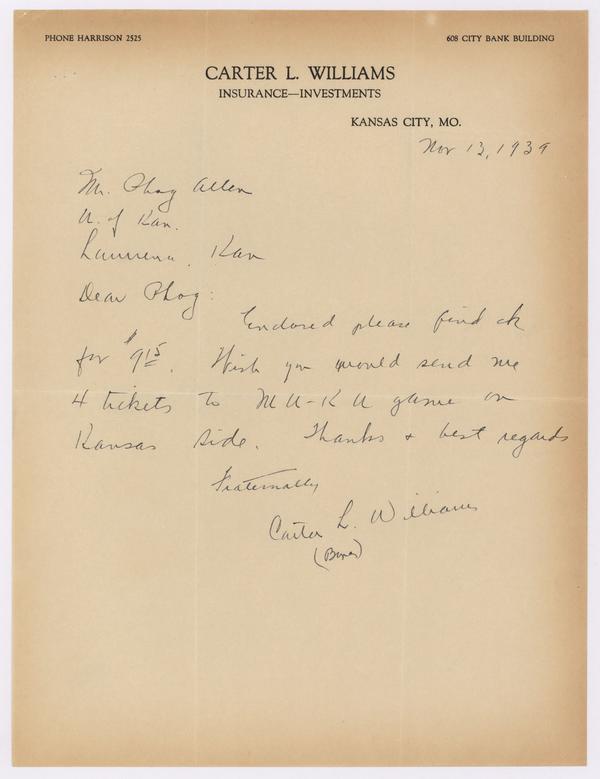 PHONE HARRISON 2525
608 CITY BANK BUILDING
CARTER L. WILLIAMS
INSURANCE—INVESTMENTS
KANSAS CITY, MO.
Nov 13, 1939
Mr. Phog Allen
U. of Kan.
Lawrence, Kan
Dear Phog:
Enclosed please find ck
for $9 15. Wish you would send me
4 tickets to M U - K U game on
Kansas side. Thanks + best regards
Fraternally
Carter L. Williams